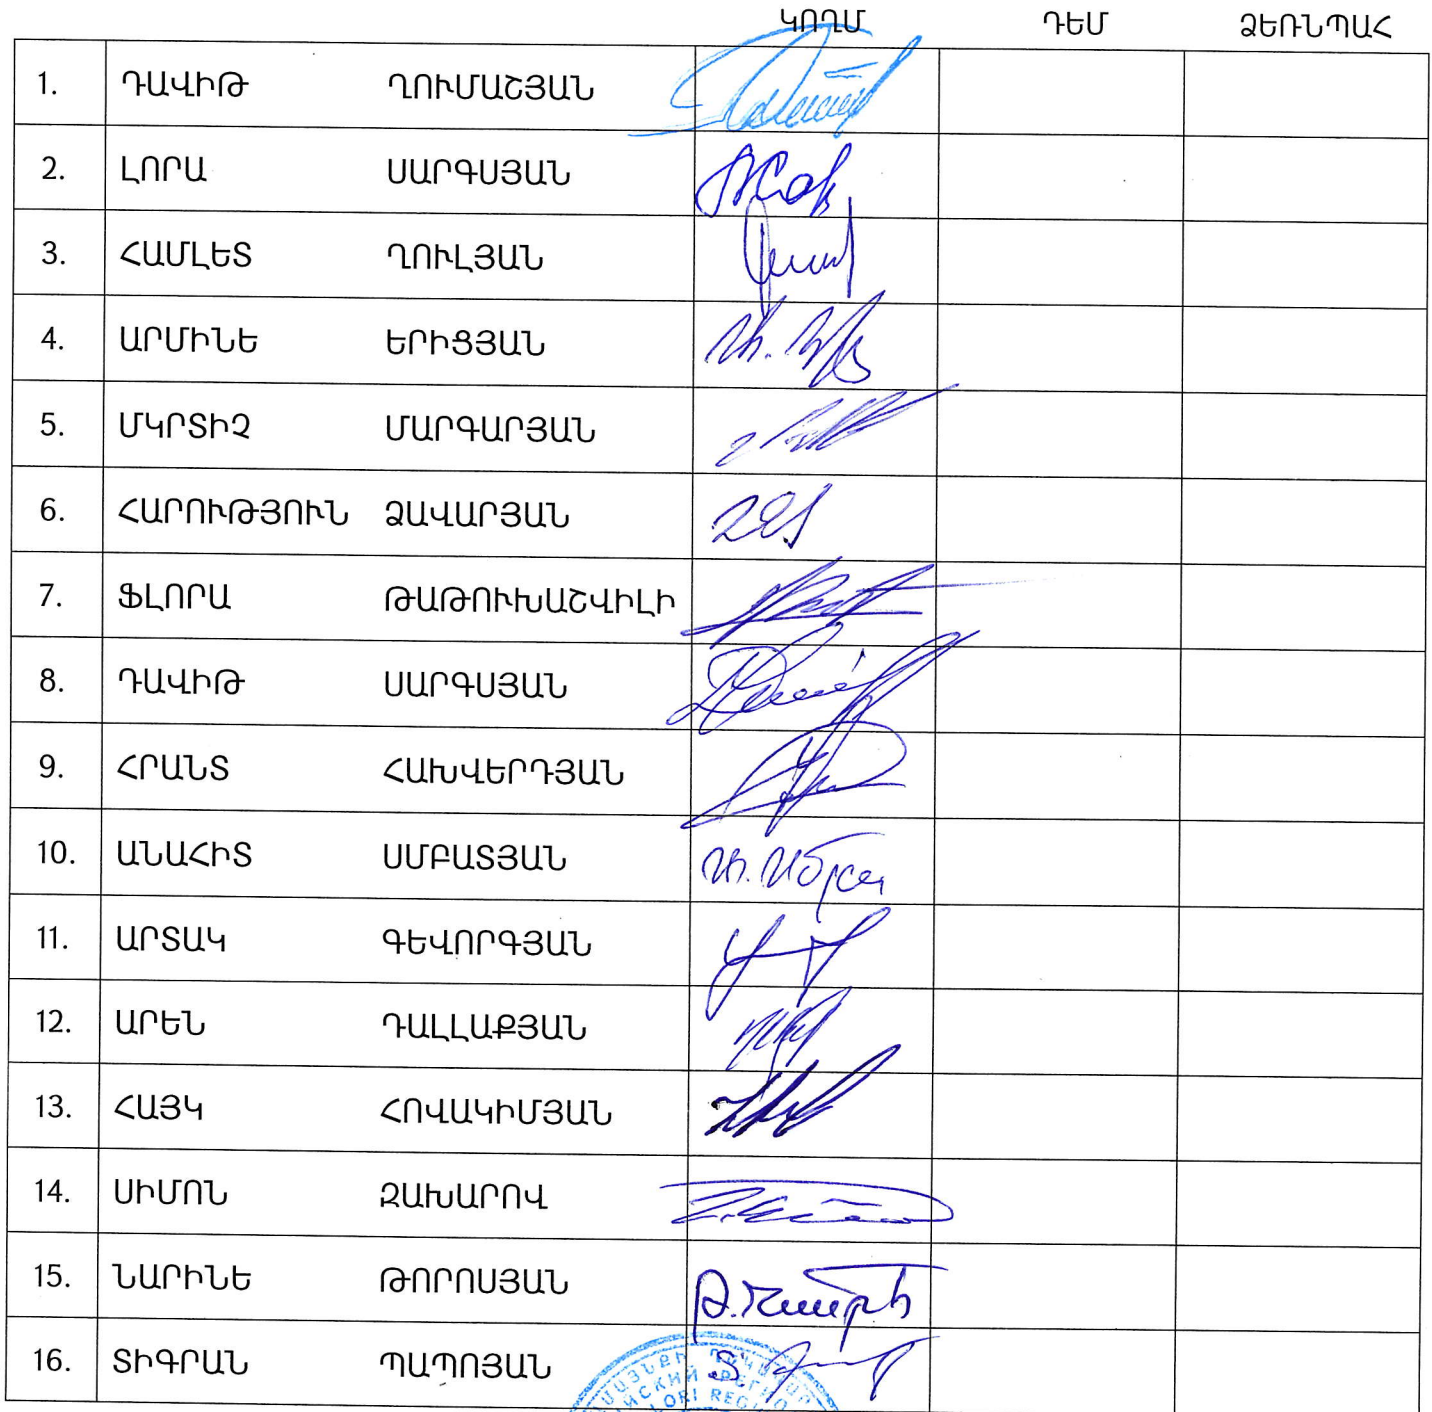 ԿՈՂՄ ԴԵՄ ՁԵՌՆՊԱՀ
1. ԴԱՎԻԹ ՂՈՒՄԱՇՅԱՆ
2. ԼՈՐԱ ՍԱՐԳՍՅԱՆ
3. ՀԱՄԼԵՏ ՂՈՒԼՅԱՆ
4. ԱՐՄԻՆԵ ԵՐԻՑՅԱՆ
5. ՄԿՐՏԻՉ ՄԱՐԳԱՐՅԱՆ
6. ՀԱՐՈՒԹՅՈՒՆ ՁԱՎԱՐՅԱՆ
7. ՖԼՈՐԱ ԹԱԹՈՒԽԱՇՎԻԼԻ
8. ԴԱՎԻԹ ՍԱՐԳՍՅԱՆ
9. ՀՐԱՆՏ ՀԱԽՎԵՐԴՅԱՆ
10. ԱՆԱՀԻՏ ՍՄԲԱՏՅԱՆ
11. ԱՐՏԱԿ ԳԵՎՈՐԳՅԱՆ
12. ԱՐԵՆ ԴԱԼԼԱՔՅԱՆ
13. ՀԱՅԿ ՀՈՎԱԿԻՄՅԱՆ
14. ՍԻՄՈՆ ԶԱԽԱՐՈՎ
15. ՆԱՐԻՆԵ ԹՈՐՈՍՅԱՆ
16. ՏԻԳՐԱՆ ՊԱՊՈՅԱՆ
LORI